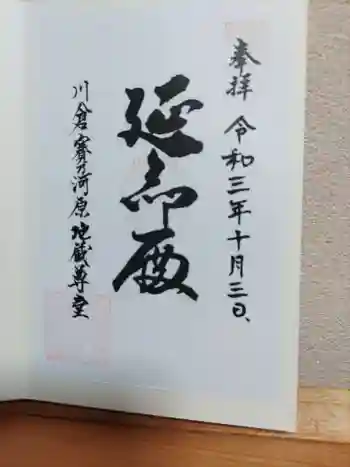 奉拝
令和三年十月三日
延命殿
川倉賽ノ河原地蔵尊堂